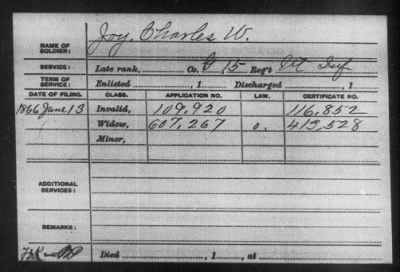 NAME OF SOLDIER: Joy, Charles W.
SERVICE: Late rank, Co. 15 Reg't Inf
TERM OF SERVICE: Enlisted , 1 Discharged , 1
DATE OF FILING. CLASS. APPLICATION NO. LAW. CERTIFICATE NO.
1866 June 13 Invalid, 109,920 116,852
Widow, 607,267 413,528
Minor,
ADDITIONAL SERVICES:
REMARKS:
Died , 1 , at